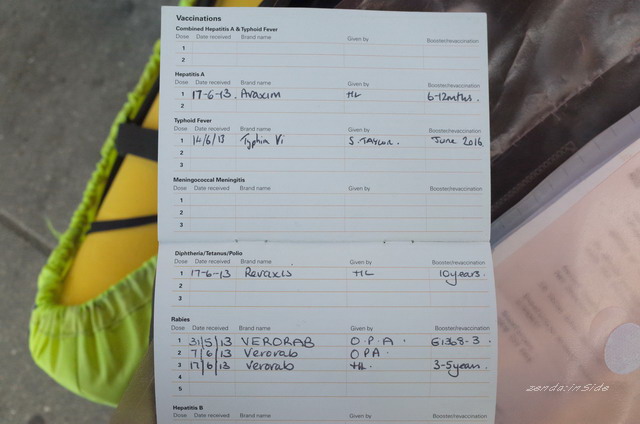 Vaccinations
Combined Hepatitis A & Typhoid Fever
Dose Date received Brand name Given by Booster/revaccination
1
2
Hepatitis A
Dose Date received Brand name Given by Booster/revaccination
1 17-6-13. Avaxim HL 6-12mths.
2
Typhoid Fever
Dose Date received Brand name Given by Booster/revaccination
1 14/6/13 Typhim Vi S. TAYLOR. June 2016
2
3
Meningococcal Meningitis
Dose Date received Brand name Given by Booster/revaccination
1
2
3
Diphtheria/Tetanus/Polio
Dose Date received Brand name Given by Booster/revaccination
1 17-6-13 Revaxis HL 10years.
2
3
Rabies
Dose Date received Brand name Given by Booster/revaccination
1 31/5/13 VERORAB O.P.A. G1368-3.
2 7/6/13 Verorab OPA.
3 17/6/13 Verorab HL. 3-5years.
4
5
Hepatitis B
Dose Date received Brand name Given by Booster/revaccination
zenda:inside